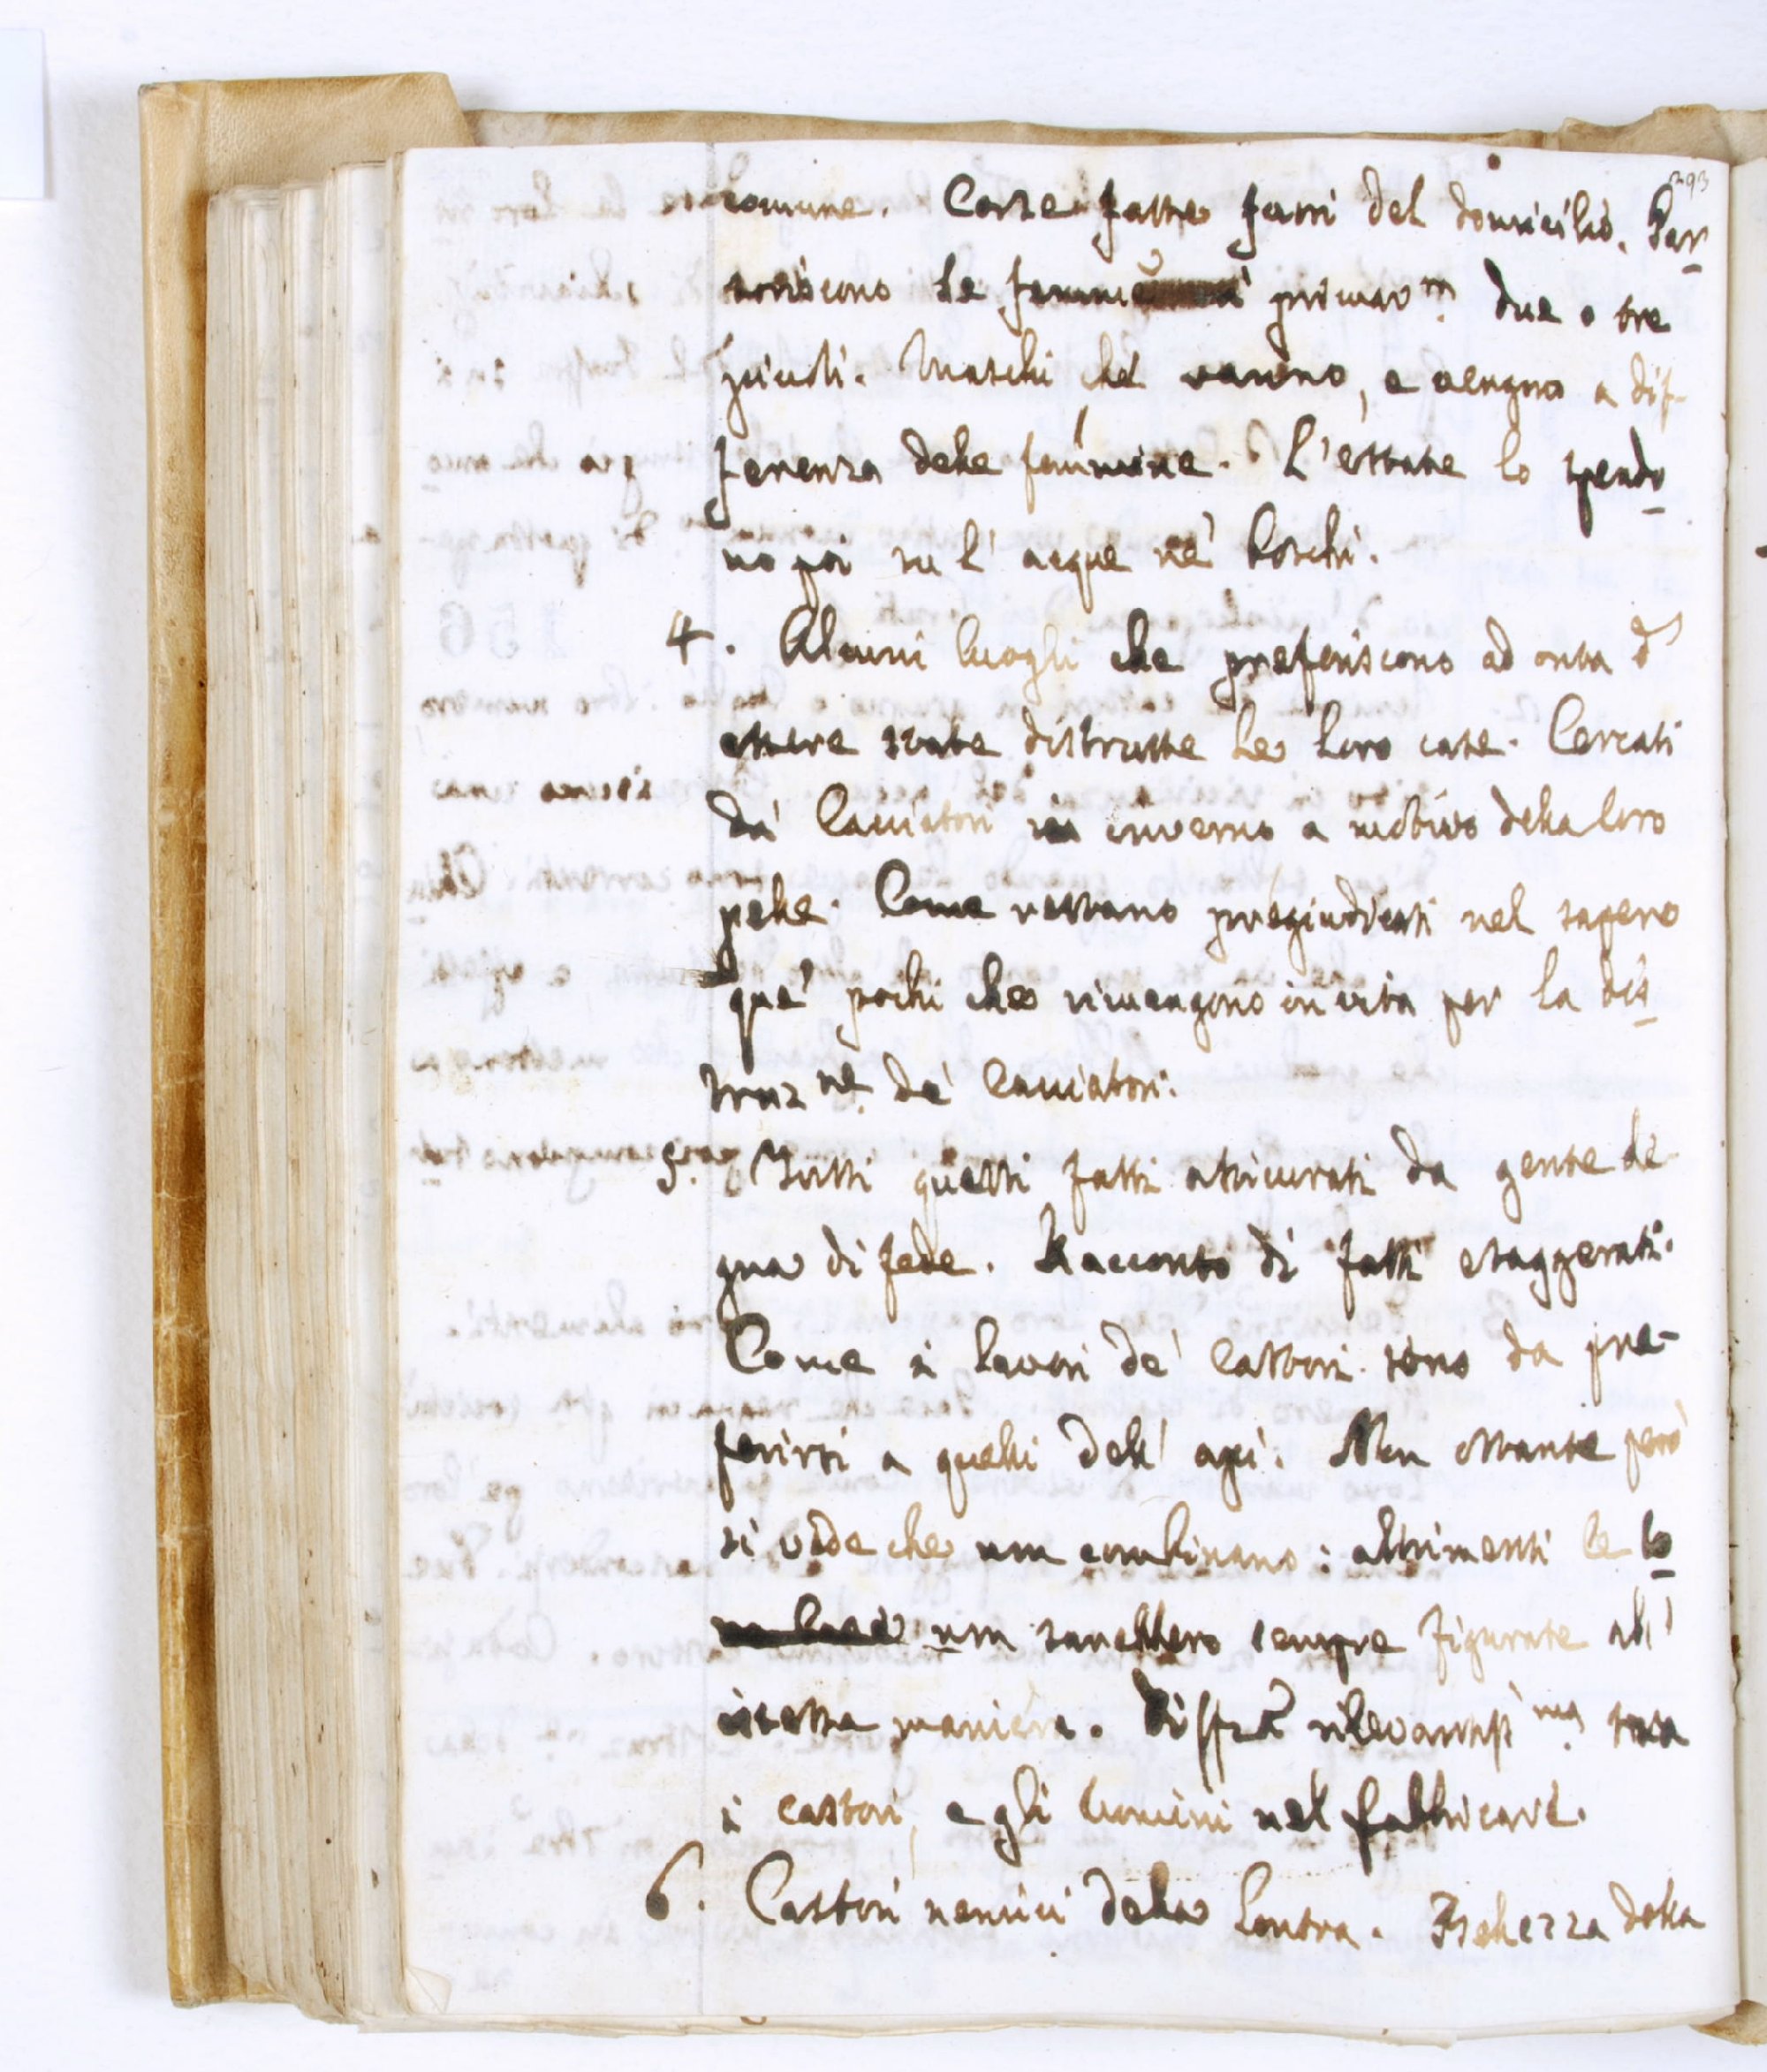 293
comune. Corse fatte fuori del domicilio. Par
toriscono le femmine primav.m due o tre
figiuoli. Maschi che vanno, e vengono a dif-
ferenza delle femmine. L'estate lo spendo
no poi su l'acque ne' boschi.
4. Alcuni luoghi che preferiscono ad onta d'
essere state distrutte le loro case. Cercati
da' Cacciatori in inverno a motivo della loro
pelle. Come restano pregiudicati nel sapere
que' pochi che rimangono in vita per la dis
truz.ne de' Cacciatori.
5. Tutti questi fatti assicurati da gente de-
gna di fede. Racconto di fatti esaggerati.
Come i lavori de' Castori sono da pre-
ferirsi a quelli dell'api. Non ostante però
si vede che non combinano: altrimenti le lo
non sarebbero sempre figurate all'
istessa maniera. Diffza rilevantiss.ma tra
i castori, e gli uomini nel fabbricare.
6. Castori nemici della Lontra. della